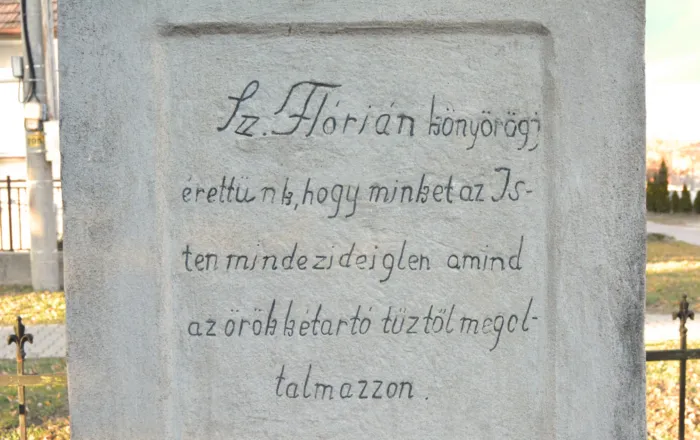 Sz. Flórián könyörögj
érettünk, hogy minket az Is-
ten mind ez ideiglen amind
az örökkétartó tűztől megol-
talmazzon.